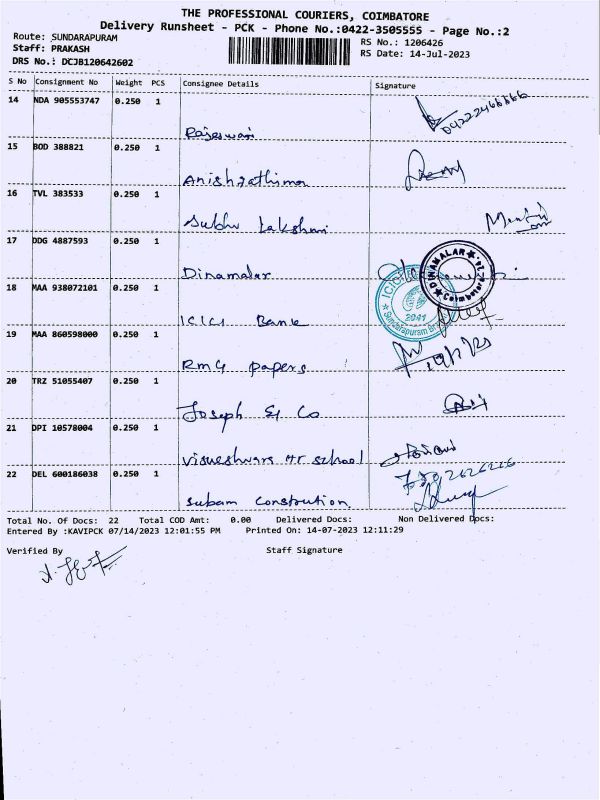 THE PROFESSIONAL COURIERS, COIMBATORE
Delivery Runsheet - PCK - Phone No.:0422-3505555 - Page No.:2
Route: SUNDARAPURAM
RS No.: 1206426
Staff: PRAKASH
RS Date: 14-Jul-2023
DRS No.: DCJB120642602
S No Consignment No Weight PCS Consignee Details Signature
14 NDA 905553747 0.250 1
Rajeswari
15 BOD 388821 0.250 1
Anishrathima
16 TVL 383533 0.250 1
Subhu Lakshmi
17 DDG 4887593 0.250 1
Dinamalar
DINAMALAR
Coimbatore
18 MAA 938072101 0.250 1
ICICI Bank
ICICI
2041
Sundarapuram
19 MAA 860598000 0.250 1
RMG papers
20 TRZ 51055407 0.250 1
Joseph & Co
21 DPI 10578004 0.250 1
Visweshwara Hr school
22 DEL 600186038 0.250 1
Subam Constrution
Total No. Of Docs: 22 Total COD Amt: 0.00 Delivered Docs: Non Delivered Docs:
Entered By :KAVIPCK 07/14/2023 12:01:55 PM Printed On: 14-07-2023 12:11:29
Verified By Staff Signature